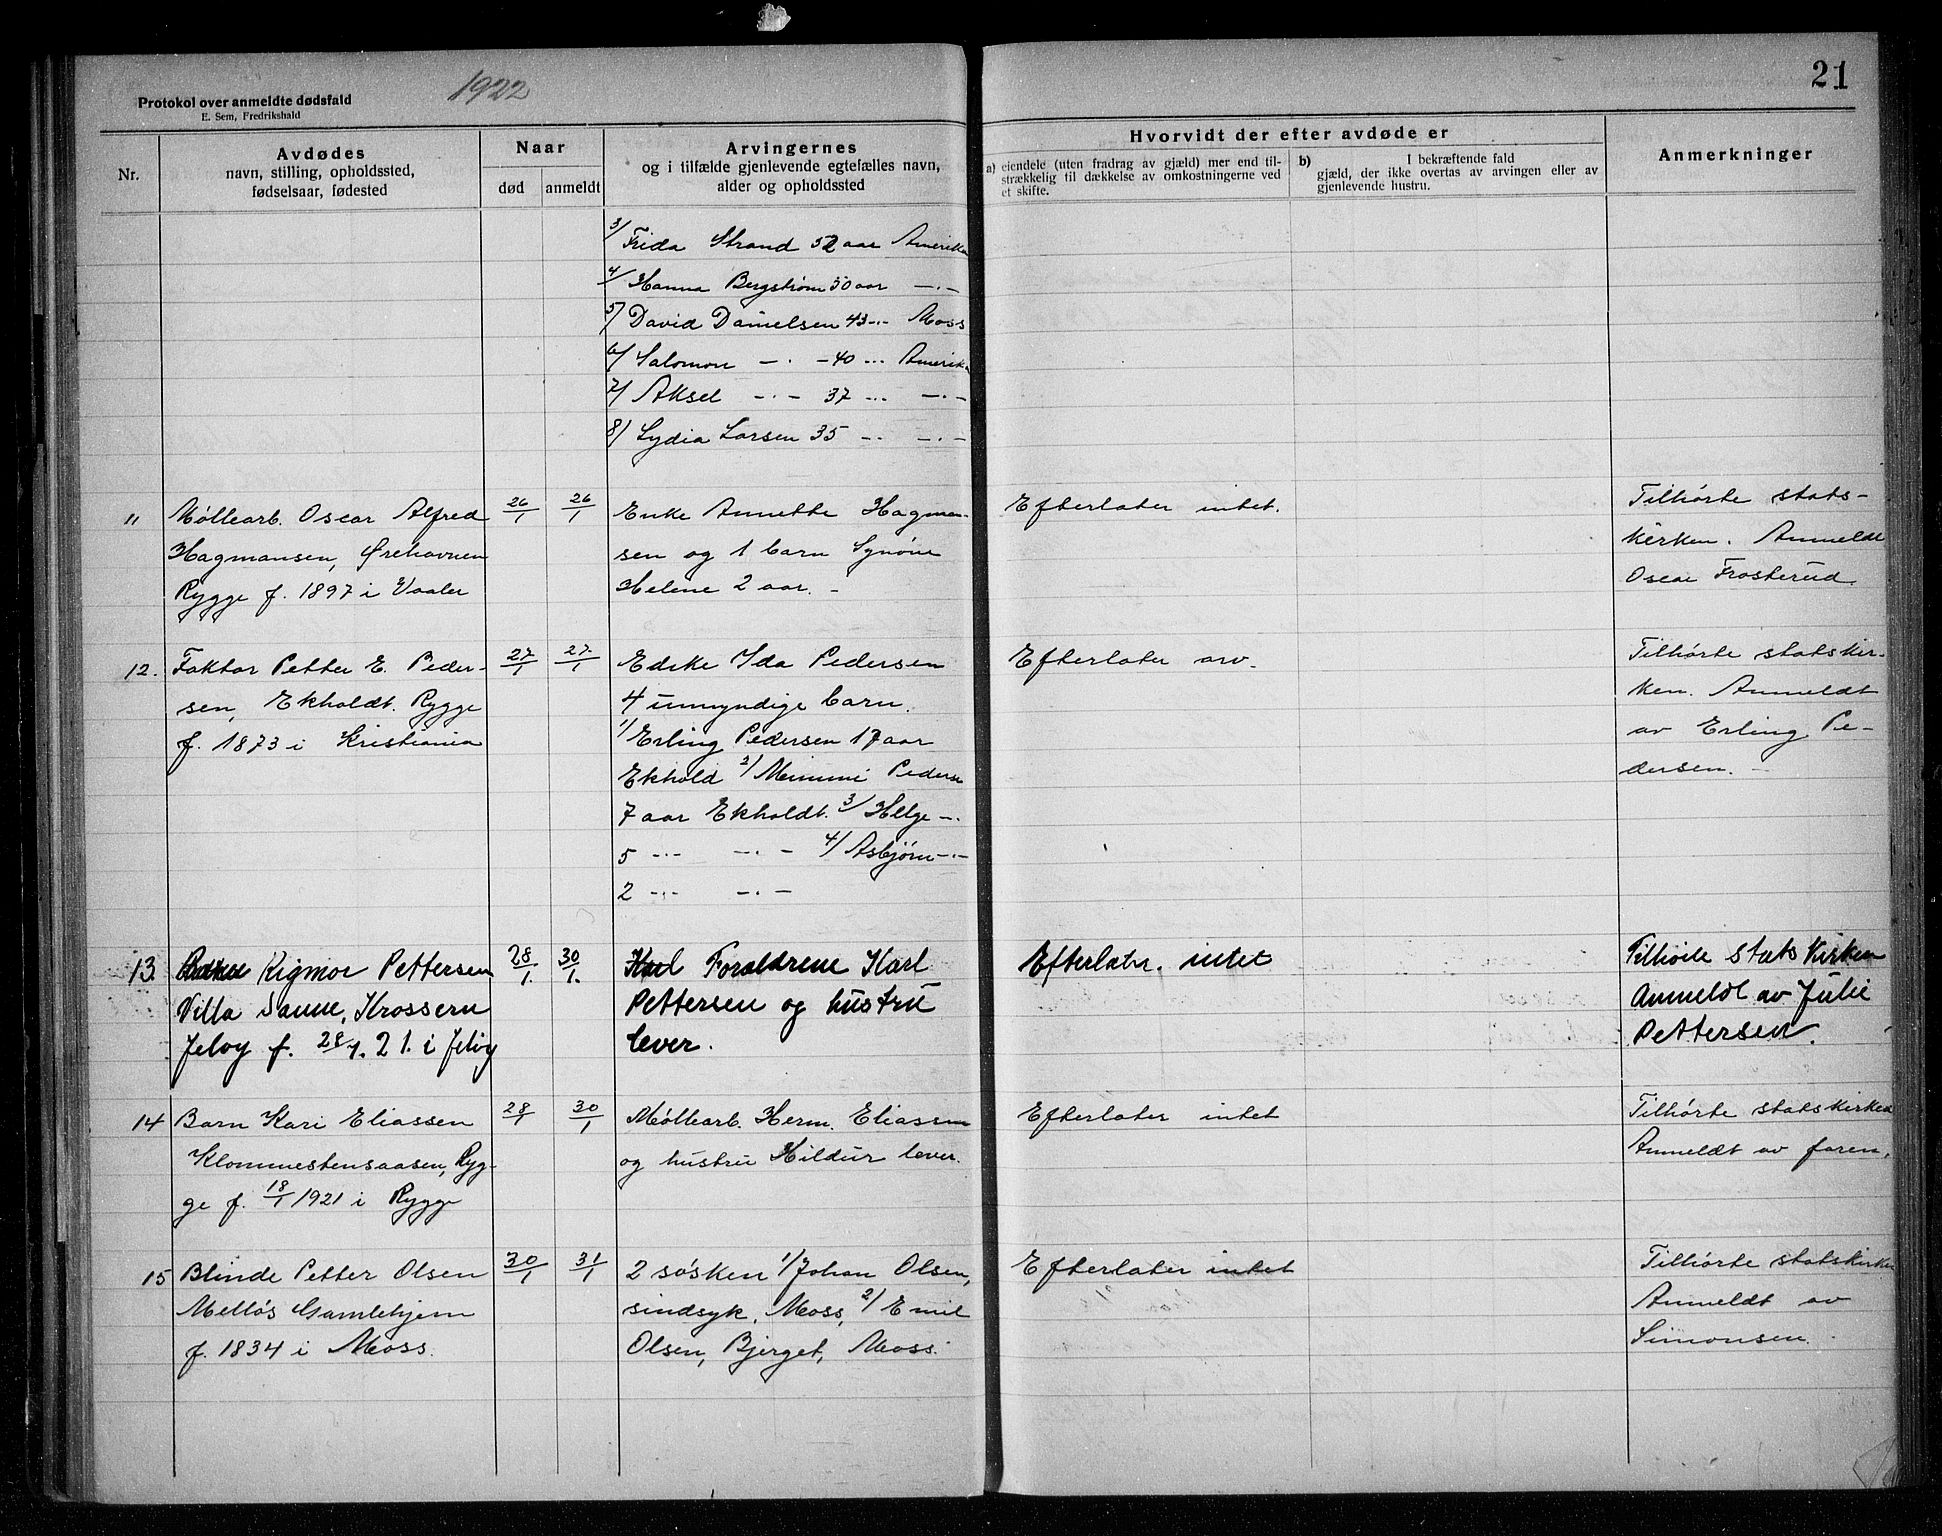 1922
21
Protokol over anmeldte dødsfald
E. Sem, Fredrikshald
Nr.
Avdødes
navn, stilling, opholdssted,
fødselsaar, fødested
Naar
død anmeldt
Arvingernes
og i tilfælde gjenlevende egtefælles navn,
alder og opholdssted
Hvorvidt der efter avdøde er
a) eiendele (uten fradrag av gjæld) mer end til-
strækkelig til dækkelse av omkostningerne ved
et skifte.
b) I bekræftende fald
gjæld, der ikke overtas av arvingen eller av
gjenlevende hustru.
Anmerkninger
3/ Frida Strand 52 aar Amerika
4/ Hanna Bergstrøm 50 aar -·-
5/ David Danielsen 43 -·- Moss
6/ Salomon -·- 40 -·- Amerika
7/ Aksel -·- 37 -·- -·-
8/ Lydia Larsen 35 -·- -·-
11
Møllearb. Oscar Alfred
Hagmansen, Ørehavnen
Rygge f. 1897 i Vaaler
26/1 26/1
Enke Annette Hagman-
sen og 1 barn Synøve
Helene 2 aar. -
Efterlater intet.
Tilhørte stats-
kirken. Anmeldt
Oscar Frosterud.
12.
Faktor Petter E. Peder-
sen, Ekholdt. Rygge
f. 1873 i Kristiania
27/1 27/1
Enke Ida Pedersen
4 umyndige barn.
1/ Erling Pedersen 17 aar
Ekhold 2/ Mimmi Peders
7 aar Ekholdt. 3/ Helge -·-
5 -·- -·- 4/ Asbjørn -·-
2 -·- -·-
Efterlater arv.
Tilhørte statskir-
ken. Anmeldt
av Erling Pe-
dersen. -
13
Rigmor Pettersen
Villa Sanne, Krossern
Jeløy f. 28/1. 21. i Jeløy
28/1. 30/1.
Karl Foraldrene Karl
Pettersen og hustru
lever.
Efterlater. intet
Tilhörte Statskirken
Anmeldt av Julie
Pettersen.
14
Barn Kari Eliassen
Klommestensaasen, Ryg-
ge f. 18/1 1921 i Rygge
28/1 30/1
Møllearb. Herm. Eliassen
og hustru Hildur lever.
Efterlater intet
Tilhørte statskirken
Anmeldt av faren.
15
Blinde Petter Olsen
Melløs Gamlehjem
f. 1834 i Moss.
30/1 31/1
2 søsken 1/ Johan Olsen,
sindsyk, Moss, 2/ Emil
Olsen, Bjerget, Moss.
Efterlater intet
Tilhørte statskirken
Anmeldt av
Simonsen.